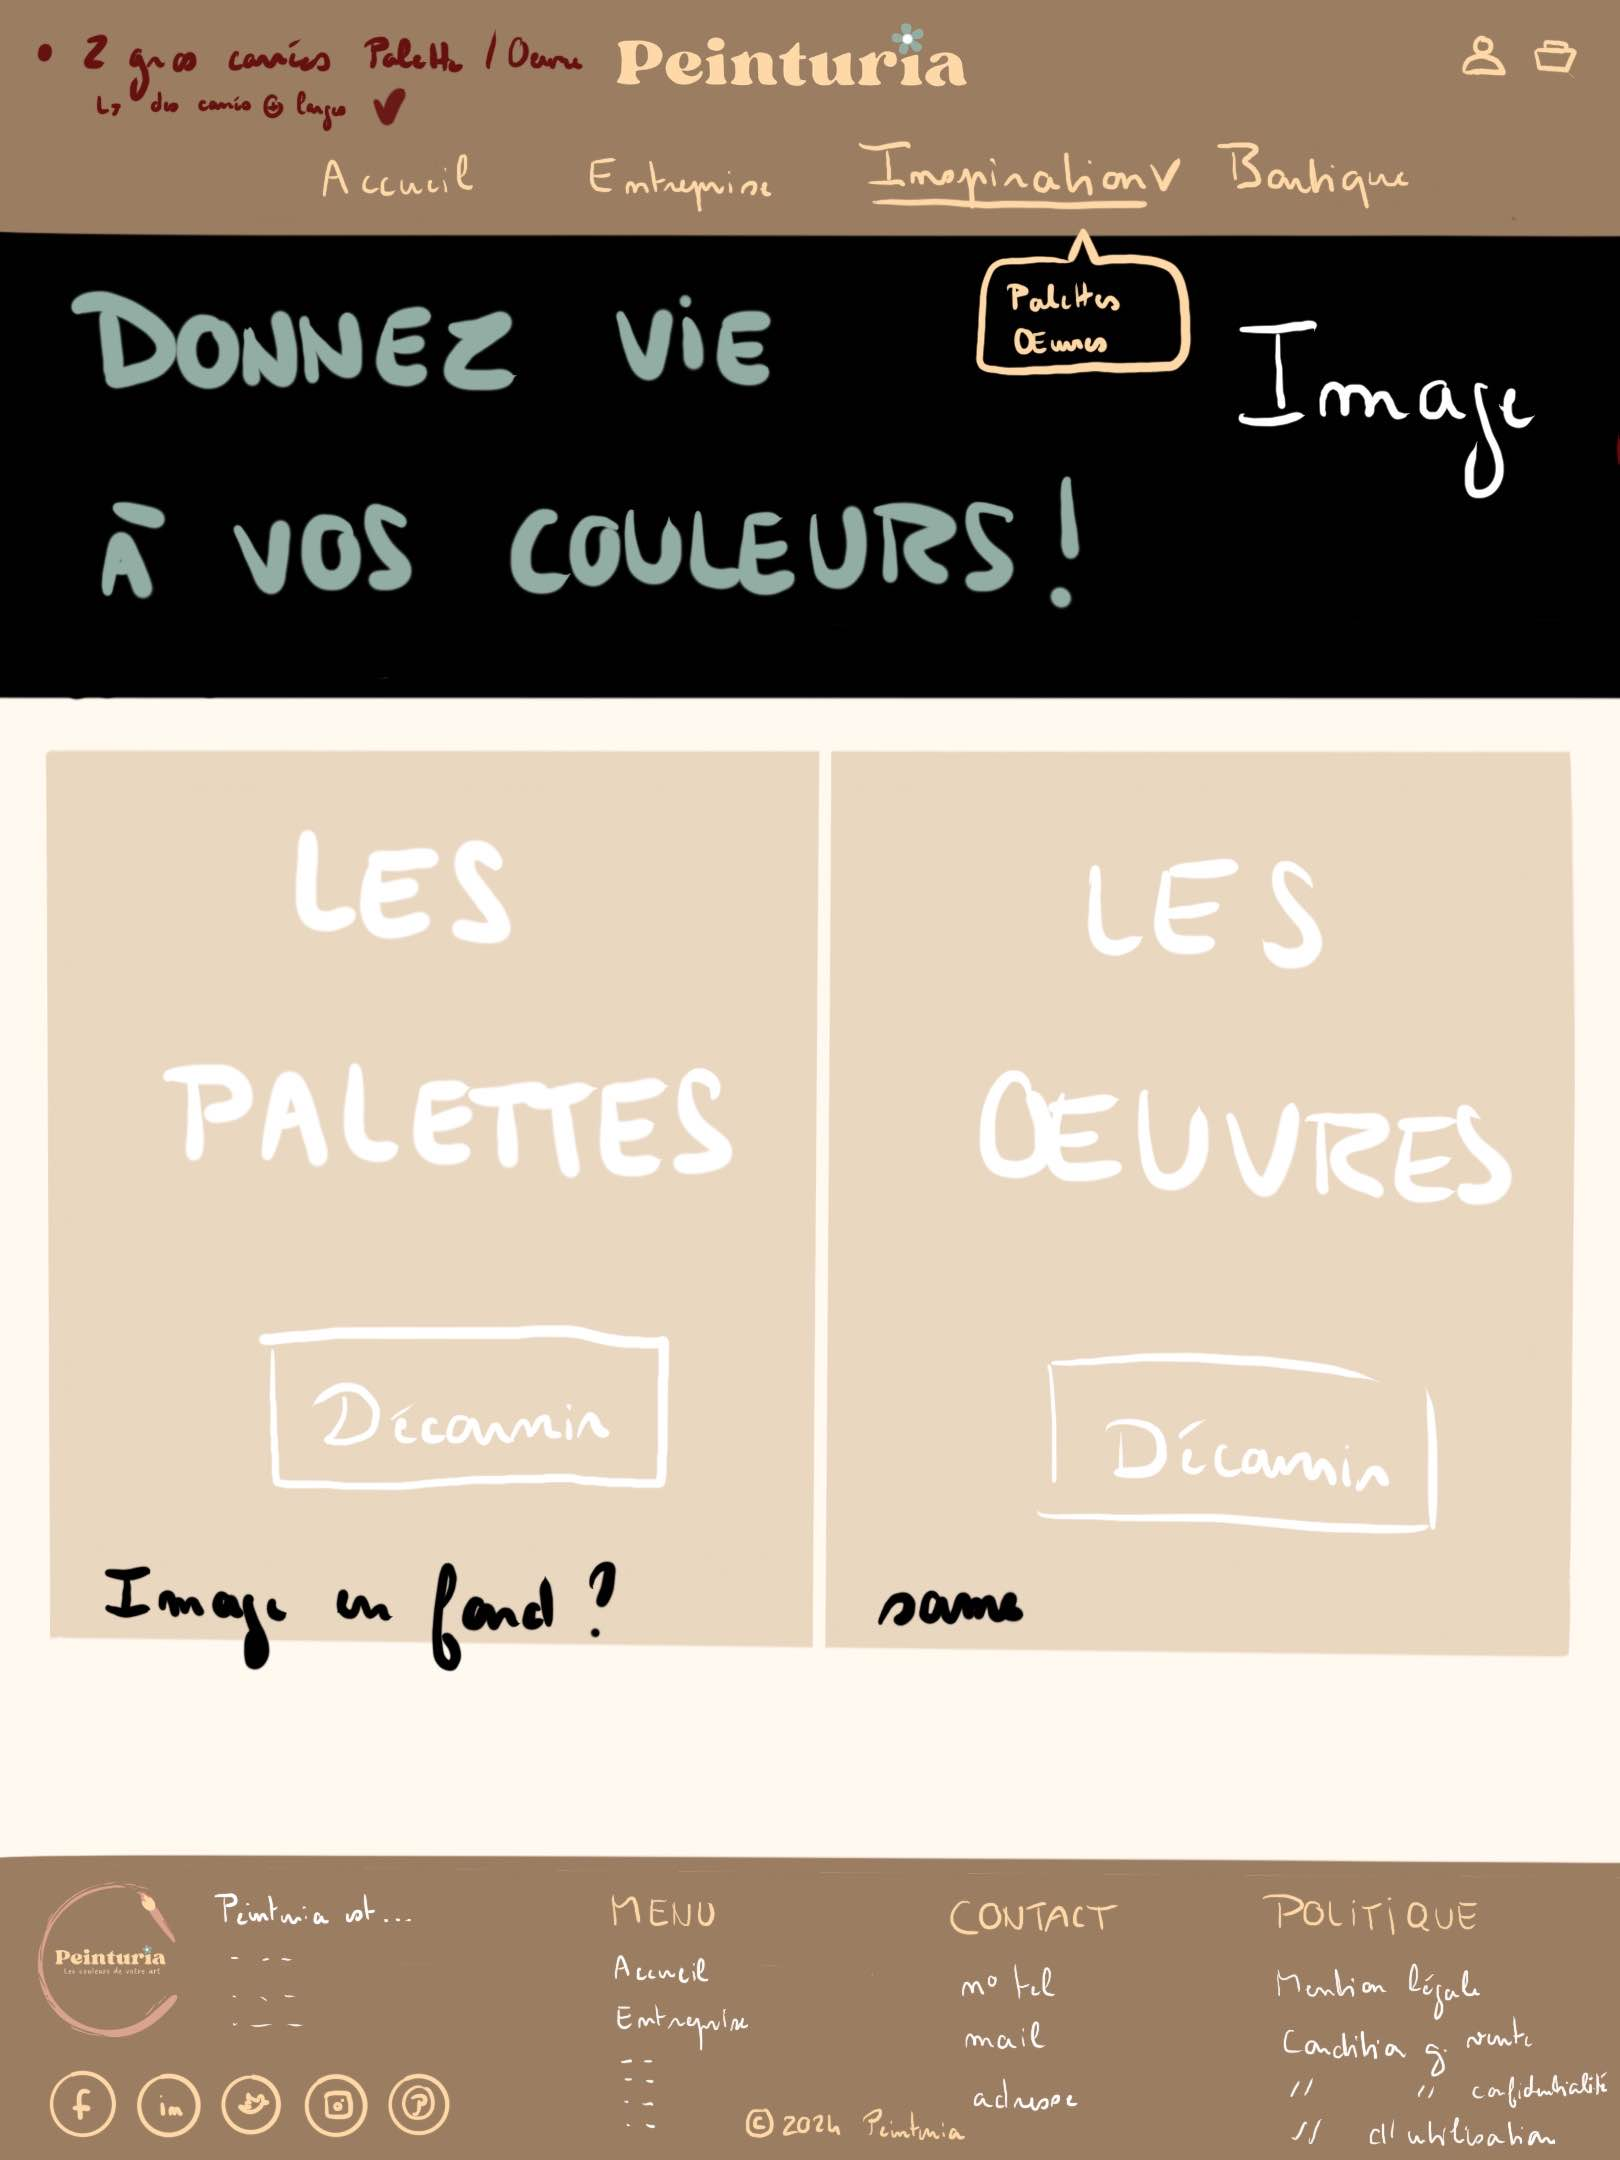 • 2 gros carrés Palette / Oeuvre
↳ des carrés ⊕ larges
Peinturia
Accueil Entreprise Inspiration Boutique
Palettes
Œuvres
DONNEZ VIE
À VOS COULEURS!
Image
LES
PALETTES
Découvrir
Image en fond ?
LES
ŒUVRES
Découvrir
same
Peinturia
Les couleurs de votre art
Peinturia est...
MENU
Accueil
Entreprise
CONTACT
n° tel
mail
adresse
POLITIQUE
Mention légale
Condition g. vente
" " confidentialité
" d'utilisation
f in
© 2024 Peinturia